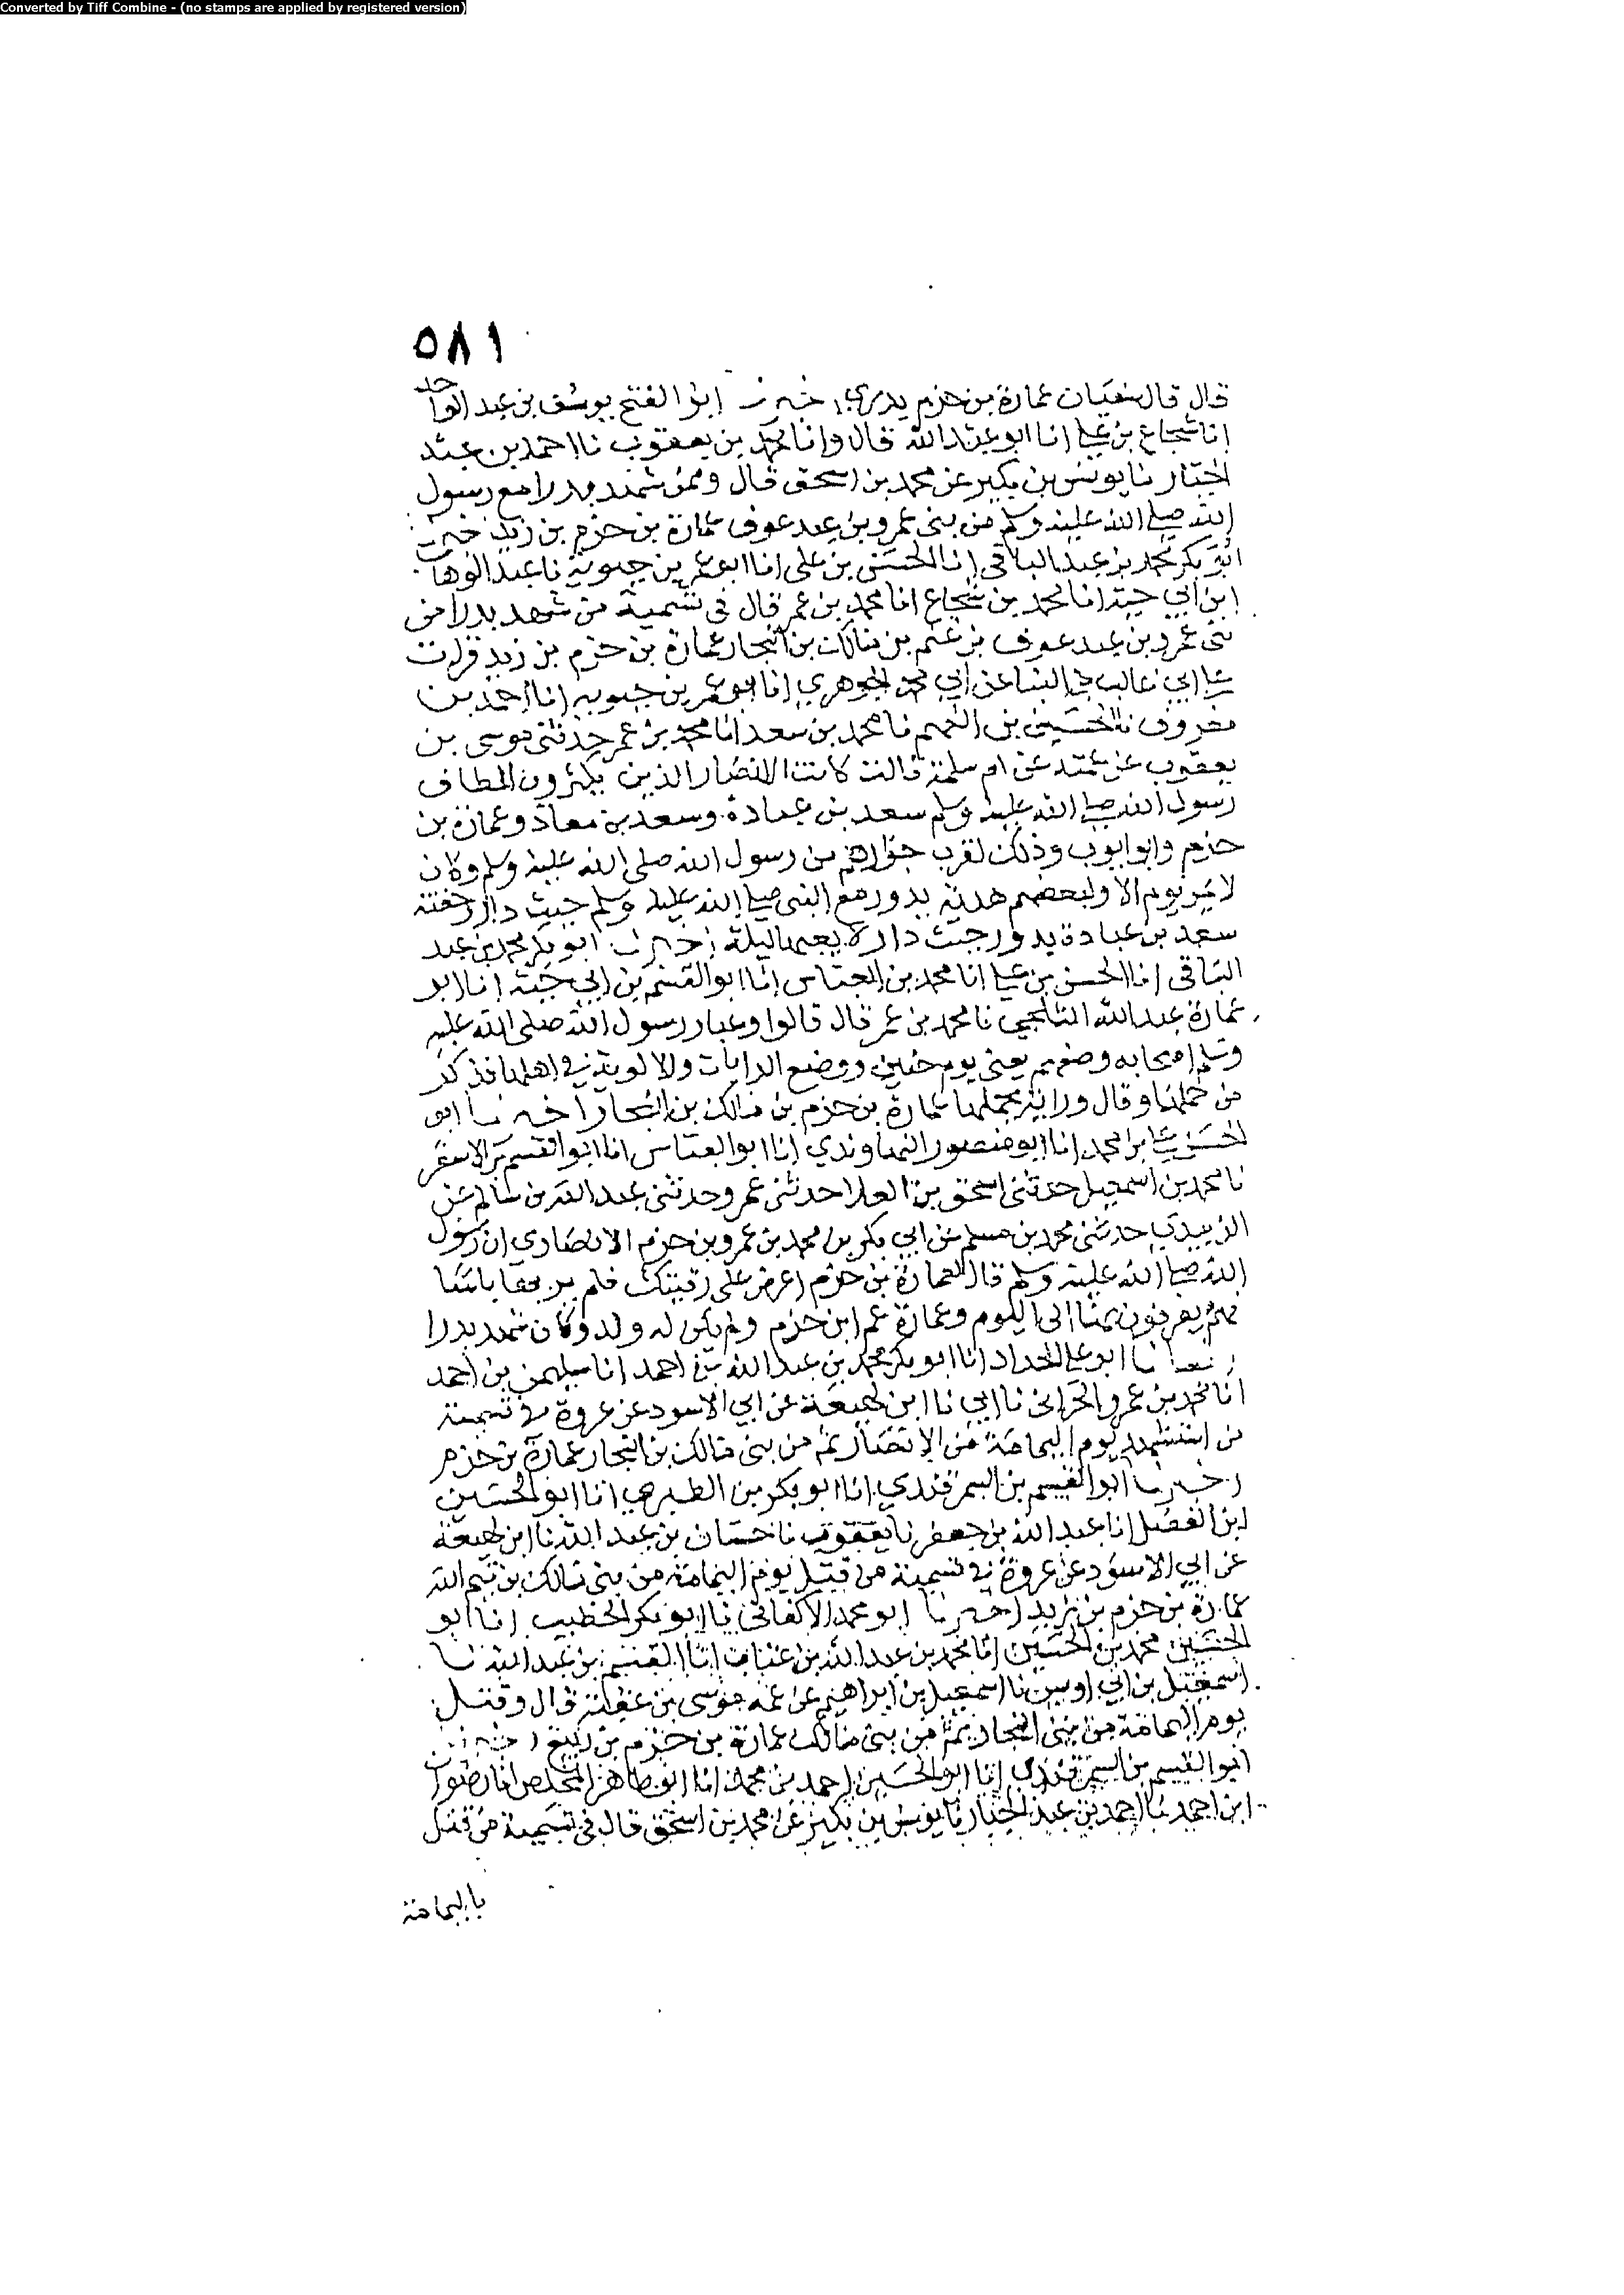 Converted by Tiff Combine - (no stamps are applied by registered version)
٥٨١
قال قال سفيان عمارة بن حزم بدري اخبرنا ابو الفتح يوسف بن عبد الواحد
انا شجاع بن علي انا ابو عبد الله قال وانا محمد بن يعقوب نا احمد بن عبد
الجبار نا يونس بن بكير عن محمد بن اسحق قال وممن شهد بدرا مع رسول
الله صلى الله عليه وسلم من بني عمرو بن عبد عوف عمارة بن حزم بن زيد اخبرنا
ابو بكر محمد بن عبد الباقي انا الحسن بن علي انا ابو عمر بن حيوية نا عبد الوهاب
ابن ابي حية انا محمد بن شجاع انا محمد بن عمر قال في تسمية من شهد بدرا من
بني عمرو بن عبد عوف بن غنم بن مالك بن النجار عمارة بن حزم بن زيد قرات
على ابي غالب بن البنا عن ابي محمد الجوهري انا ابو عمر بن حيويه انا احمد بن
معروف نا الحسين بن الفهم نا محمد بن سعد انا محمد بن عمر حدثني موسى بن
يعقوب عن عمته عن ام سلمة قالت كانت الانصار الذين يكثرون الطاف
رسول الله صلى الله عليه وسلم سعد بن عبادة وسعد بن معاذ وعمارة بن
حزم وابو ايوب وذلك لقرب جوارهم من رسول الله صلى الله عليه وسلم وكان
لا يمر يوم الا ولبعضهم هدية يدور مع النبي صلى الله عليه وسلم حيث دار وجفنة
سعد بن عبادة يدور حيث دار لا يغبها ليلة اخبرنا ابو بكر محمد بن عبد
الباقي انا الحسن بن علي انا محمد بن العباس انا ابو القسم بن ابي حية انا ابو
عبد الله الثلجي نا محمد بن عمر قال قالوا وعبا رسول الله صلى الله عليه
وسلم اصحابه وصفهم يعني يوم حنين ووضع الرايات والالوية في اهلها فذكر
من حملها وقال وراية يحملها عمارة بن حزم بن مالك بن النجار اخبرنا ابو
الحسن علي بن محمد انا ابو منصور النهاوندي انا ابو العباس انا ابو القسم بن الاشقر
نا محمد بن اسمعيل حدثني اسحق بن العلا حدثني عمرو حدثني عبد الله بن سالم عن
الزبيدي حدثني محمد بن مسلم عن ابي بكر بن محمد بن عمرو بن حزم الانصاري ان رسول
الله صلى الله عليه وسلم قال لعمارة بن حزم اعرض على رقيتك فلم ير بها باسا
فهم يعرفون بها الى اليوم وعمارة عم ابن حزم ولم يكن له ولد وكان شهد بدرا
ابو علي الحداد انا ابو بكر محمد بن عبد الله بن احمد انا سليمن بن احمد
انا محمد بن عمرو الحراني نا ابي نا ابن لهيعة عن ابي الاسود عن عروة في تسمية
من استشهد يوم اليمامة من الانصار ثم من بني مالك بن النجار عمارة بن حزم
اخبرنا ابو القسم بن السمرقندي انا ابو بكر بن الطبري انا ابو الحسين
ابن الفضل انا عبد الله بن جعفر نا يعقوب نا حسان بن عبد الله نا ابن لهيعة
عن ابي الاسود عن عروة في تسمية من قتل يوم اليمامة من بني مالك بن تيم الله
عمارة بن حزم بن زيد اخبرنا ابو محمد الاكفاني نا ابو بكر الخطيب انا ابو
الحسين محمد بن الحسين انا محمد بن عبد الله بن عتاب انا القسم بن عبد الله نا
اسمعيل بن ابي اويس نا اسمعيل بن ابراهيم عن عمه موسى بن عقبة قال وقتل
يوم اليمامة من بني النجار ثم من بني مالك عمارة بن حزم بن اخبرنا
ابو القسم بن السمرقندي انا ابو الحسين احمد بن محمد انا ابو طاهر المخلص انا رضوان
ابن احمد نا احمد بن عبد الجبار نا يونس بن بكير عن محمد بن اسحق قال في تسمية من قتل
باليمامة